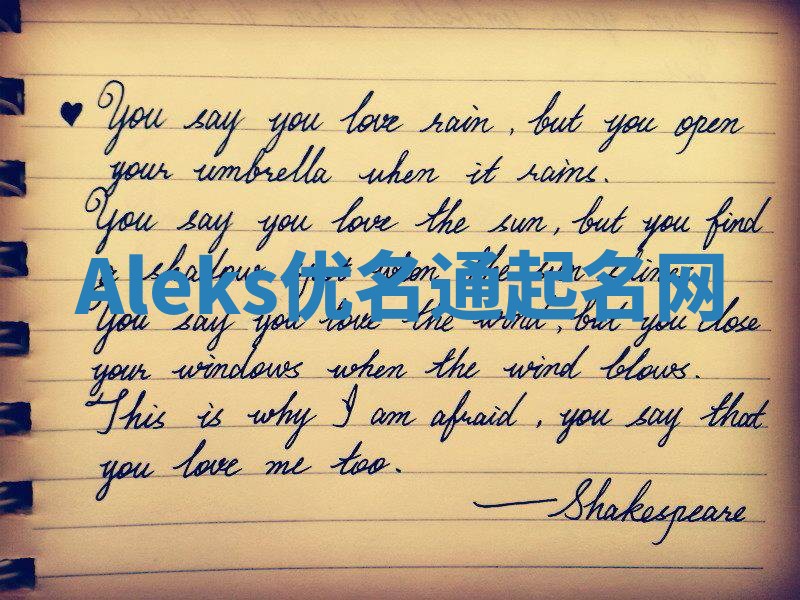 ♥ You say you love rain, but you open
your umbrella when it rains.
You say you love the sun, but you find
a shadow spot when the sun shines.
Aleks优名通起名网
You say you love the wind, but you close
your windows when the wind blows.
This is why I am afraid, you say that
you love me too.
— Shakespeare